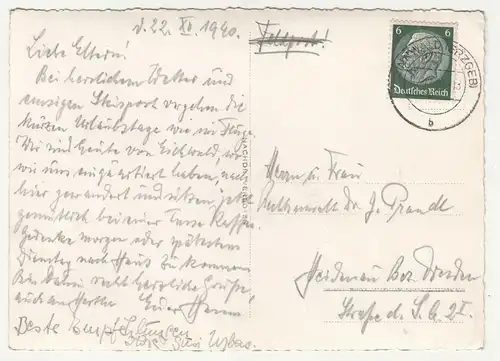 d. 22. XII. 1940.
Feldpost!
Liebe Eltern!
Bei herrlichem Wetter und
Skisport vergehen die
kurzen Urlaubstage wie im Fluge.
Wir sind heute von Eichwald, wo
wir uns einquartiert haben, nach
hier gewandert und sitzen jetzt
gemütlich bei einer Tasse Kaffee.
Gedenke morgen oder spätestens
Dienstag nach Haus zu kommen.
Bis dahin recht herzliche Grüße,
auch an Hertha. Euer
Beste
6 6
Deutsches Reich
(ERZGEB)
b
Herrn u. Frau
Rechtsanwalt Dr. J. Prandt
Heidenau Bez. Dresden
Straße d. S. A. 21.